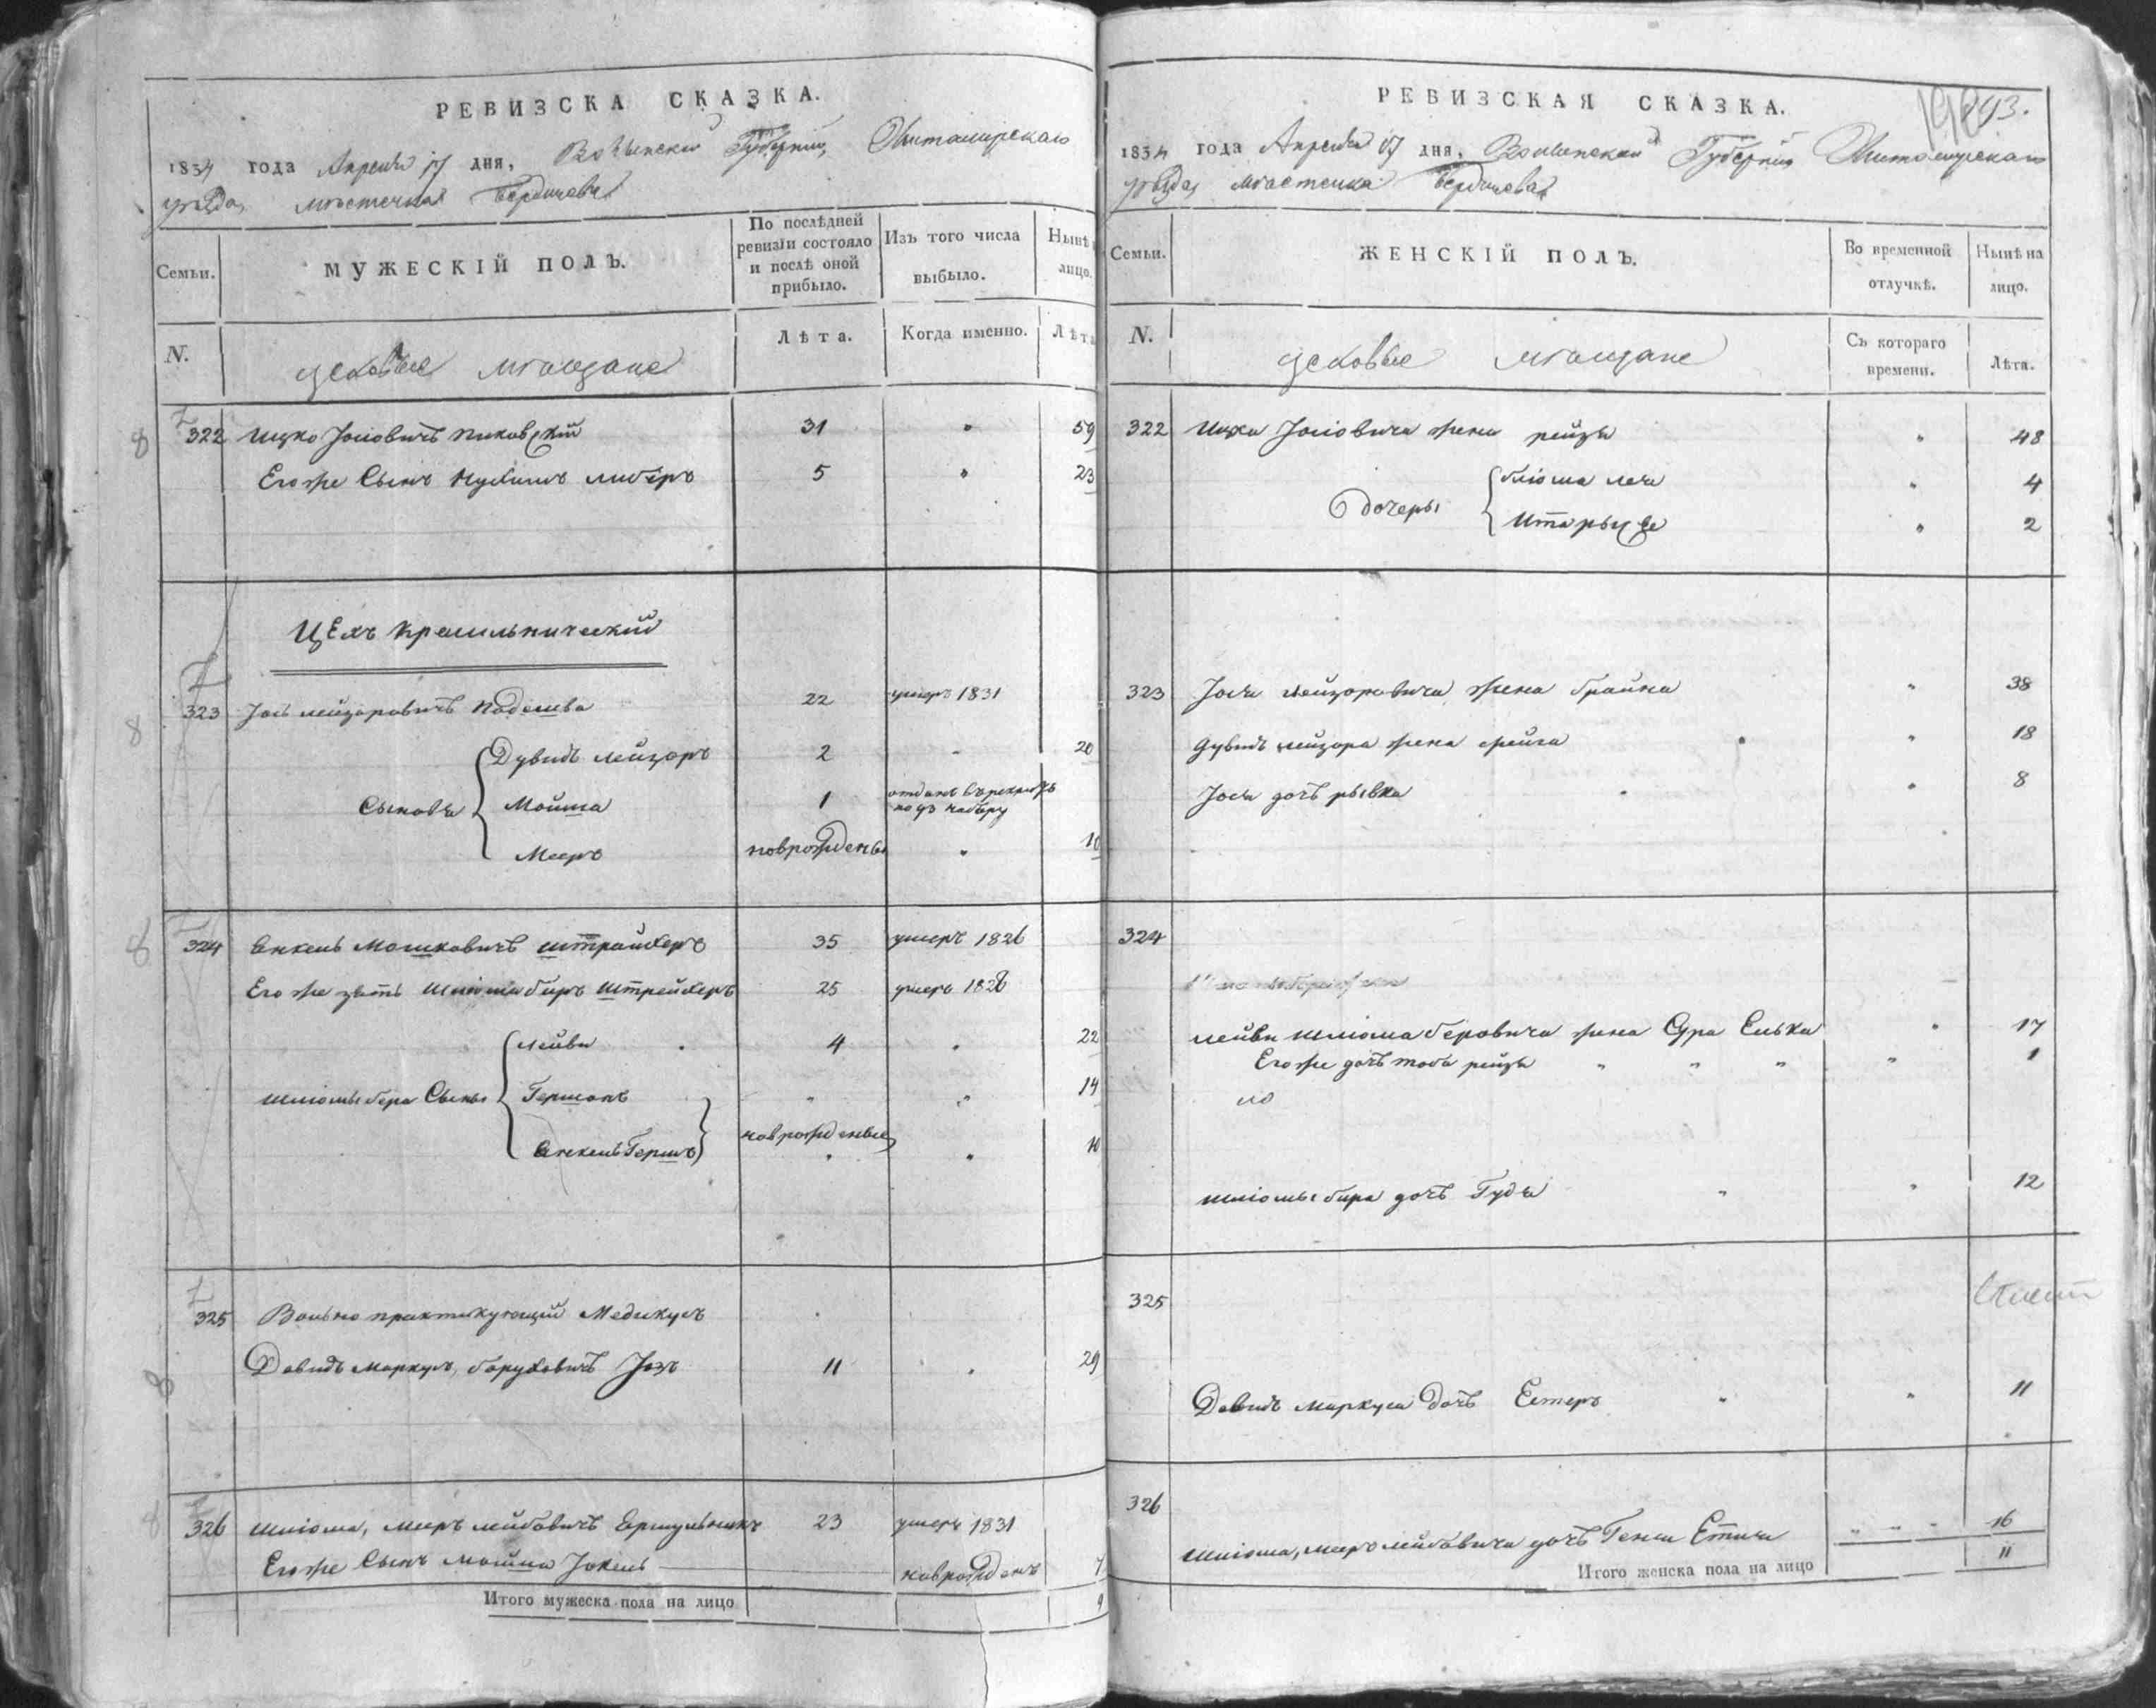 РЕВИЗСКА СКАЗКА.
1834 года Апреля 17 дня, Волынской Губернии, Житомирскаго
уѣзда, мѣстечка Бердичева
Семьи.
МУЖЕСКІЙ ПОЛЪ.
По послѣдней ревизіи состояло и послѣ оной прибыло.
Изъ того числа выбыло.
Нынѣ лицо.
N.
цеховые мѣщане
Лѣта.
Когда именно.
Лѣта
8 322 Ицко Јосіовичъ Пиковскій 31 " 59
Его же Сынъ Нухимъ либеръ 5 " 23
ЦЕхъ Красильнический
8 323 Јось лейзоровичъ 22 умеръ 1831
Сыновья
Дувидъ лейзоръ 2 - 20
Мошка 1 отданъ въ рекруты
по 93 набору
Мееръ новрожденый " 10
8 324 Янкель Мошковичъ штрайхеръ 35 умеръ 1826
Его же зять Шліома беръ Штрейхеръ 25 умеръ 1828
Шліомы бера Сыны
лейви 4 " 22
Гершонъ " " 14
Янкель Гершъ новрожденые " 10
8 325 Вольно практикующій Медикусъ
Давидъ Маркусъ, боруховичъ 11 . 29
8 326 шліома, мееръ лейбовичъ 23 умеръ 1831
Его же Сынъ мошка Јокель новрожденъ 7
Итого мужеска пола на лицо 9
РЕВИЗСКАЯ СКАЗКА.
193.
1834 года Апреля 17 дня, Волынской Губерніи Житомирскаго
уѣзда, мѣстечка Бердичева
Семьи.
ЖЕНСКІЙ ПОЛЪ.
Во временной отлучкѣ.
Нынѣ на лицо.
N.
цеховые мѣщане
Съ котораго времени.
Лѣта.
322 Ицка Јосіовича жена рейзя " 48
Дочеры
бліома леа " 4
Ита " 2
323 Јося лейзоровича жена брайна " 38
Дувидъ лейзора жена фейга " 18
Јося дочъ рывка " 8
324
лейви шліома беровича жена Сура Елька " 17
Его же дочъ тоба рейзя " " " " 1
шліомы бера дочъ Гудя " " 12
325
Давидъ маркуса Дочъ Естеръ " " 11
326
шліома, мееръ лейбовича дочъ Геня Етля " " " 16
Итого женска пола на лицо 11